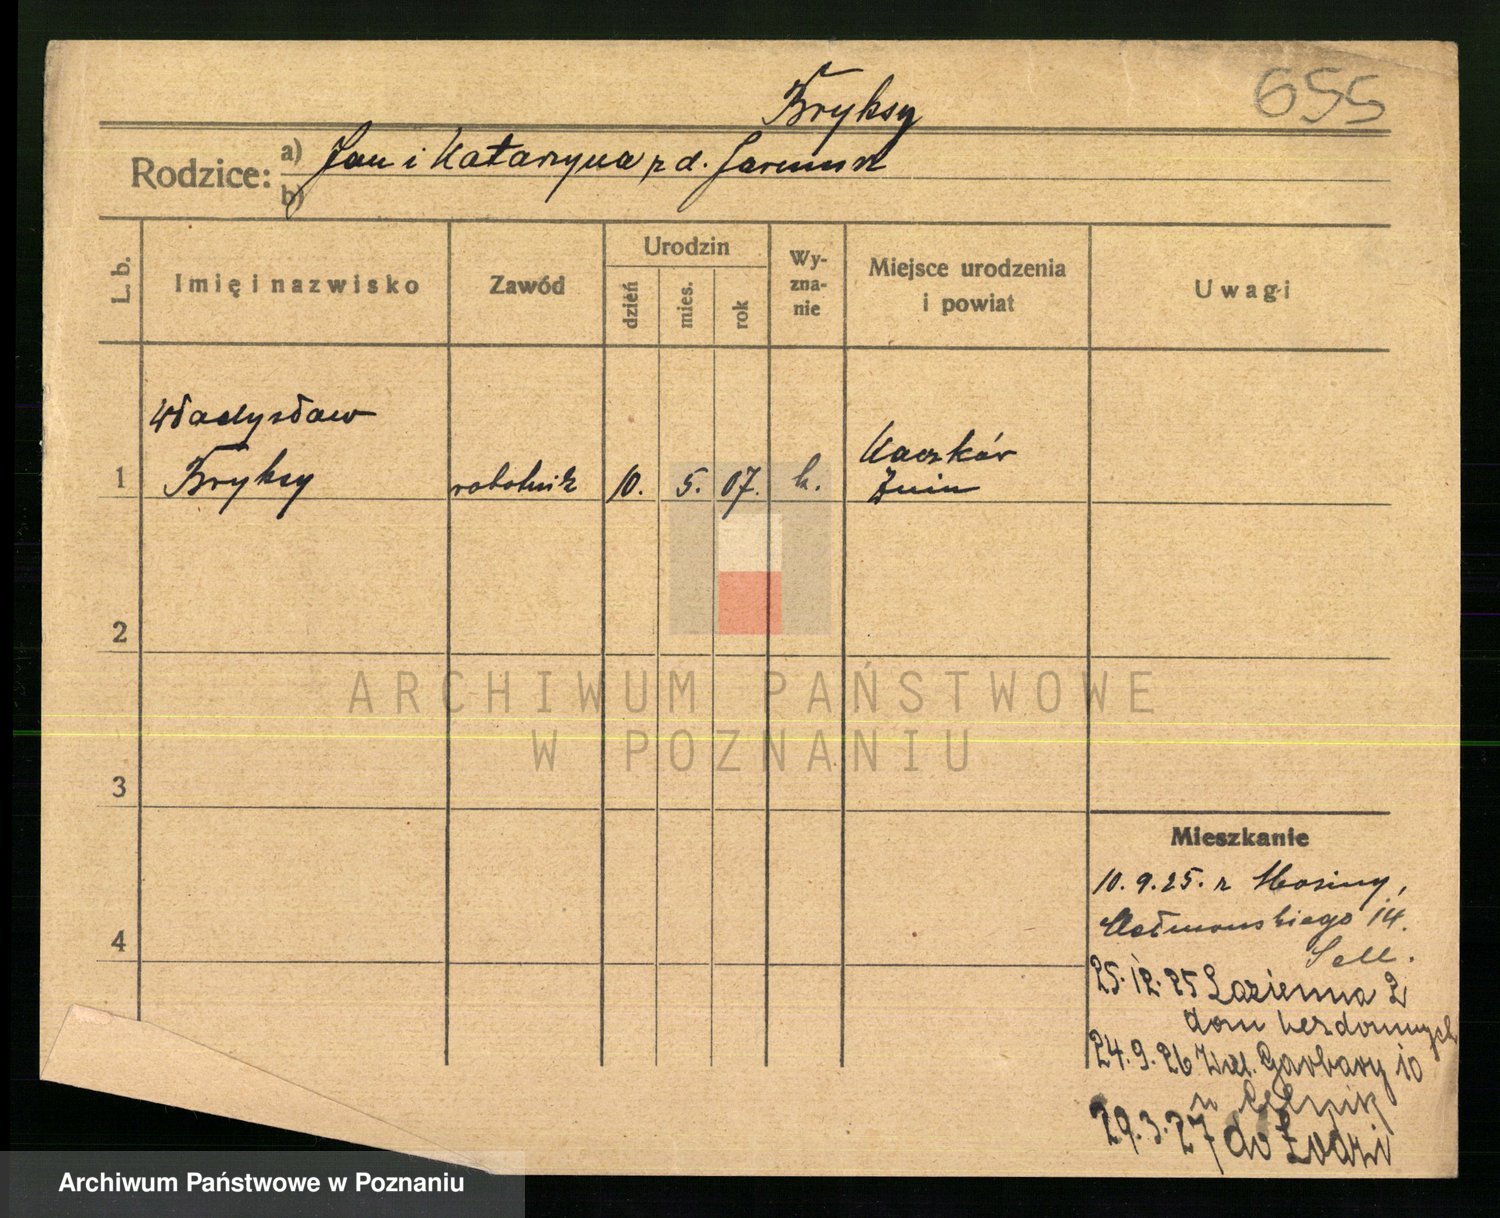 655
Fryksy
Rodzice: a) Jan i Katarzyna z d.
b)
L. b.
Imię i nazwisko
Zawód
Urodzin
dzień
mies.
rok
Wy-
zna-
nie
Miejsce urodzenia
i powiat
Uwagi
Władysław
1 Fryksy robotnik 10. 5. 07. k. Żnin
2
ARCHIWUM PAŃSTWOWE
W POZNANIU
3
Mieszkanie
10.9.25. z Mosiny,
14.
4
25.12.25 Łazienna 2
dom bezdomnych
24.9.26 Wlk. Garbary 10
29.3.27 do Łodzi
Archiwum Państwowe w Poznaniu